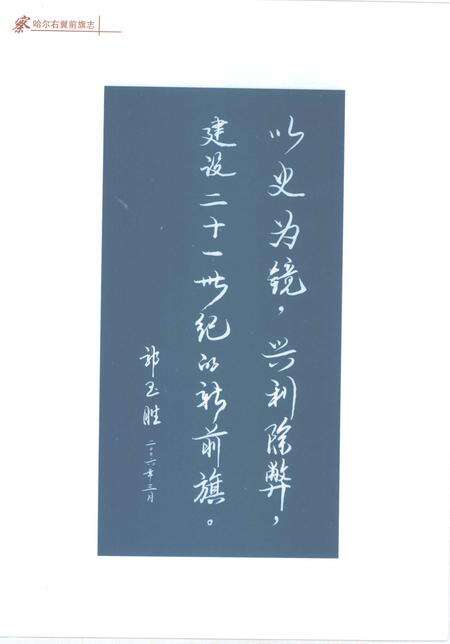 察哈尔右翼前旗志
以史为镜，兴利除弊，
建设二十一世纪的新前旗。
祁玉胜
二〇〇六年三月